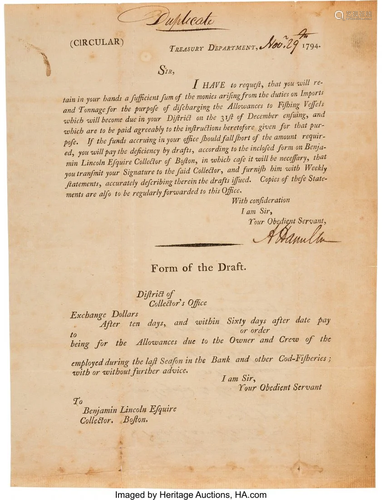 Duplicate
(CIRCULAR)
TREASURY DEPARTMENT, Nov. 29th 1794.
SIR,
I HAVE to request, that you will re-
tain in your hands a sufficient sum of the monies arising from the duties on Imports
and Tonnage for the purpose of discharging the Allowances to Fishing Vessels
which will become due in your District on the 31st of December ensuing, and
which are to be paid agreeably to the instructions heretofore, given for that pur-
pose. If the funds accruing in your office should fall short of the amount requir-
ed, you will pay the deficiency by drafts, according to the inclosed form on Benja-
min Lincoln Esquire Collector of Boston, in which case it will be necessary, that
you transmit your Signature to the said Collector, and furnish him with Weekly
statements, accurately describing therein the drafts issued. Copies of these State-
ments are also to be regularly forwarded to this Office.
With consideration
I am Sir,
Your Obedient Servant,
A Hamilton
Form of the Draft.
District of
Collector's Office
Exchange Dollars
After ten days, and within Sixty days after date pay
to or order
being for the Allowances due to the Owner and Crew of the
employed during the last Season in the Bank and other Cod-Fisheries;
with or without further advice.
I am Sir,
Your Obedient Servant
To
Benjamin Lincoln Esquire
Collector. Boston.
Imaged by Heritage Auctions, HA.com